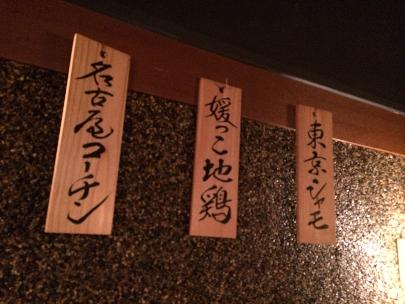 名古屋コーチン
媛っこ地鶏
東京シャモ